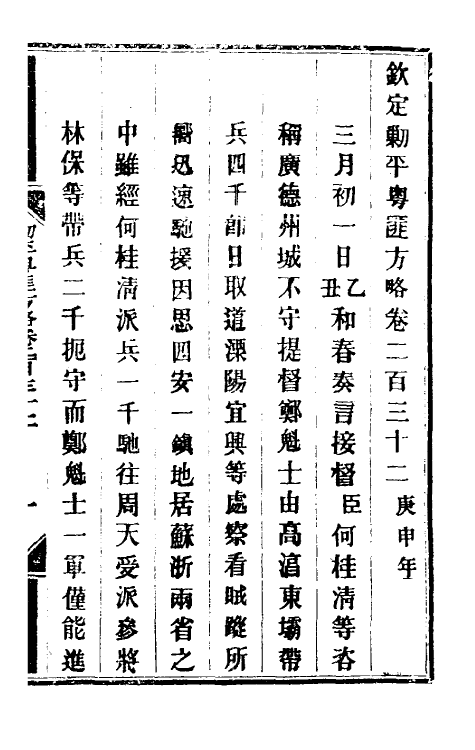 欽定勦平粵匪方略卷二百三十二 庚申年
三月初一日乙丑和春奏言接督臣何桂清等咨
稱廣德州城不守提督鄭魁士由高淳東壩帶
兵四千卽日取道溧陽宜興等處察看賊蹤所
嚮迅速馳援因思四安一鎮地居蘇浙兩省之
中雖經何桂清派兵一千馳往周天受派參將
林保等帶兵二千扼守而鄭魁士一軍僅能進